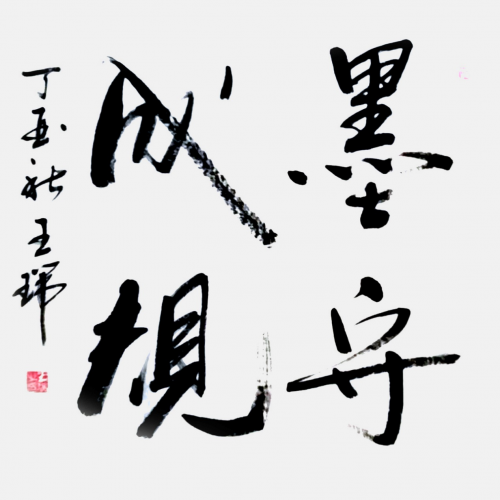 墨守
成規
丁酉秋王